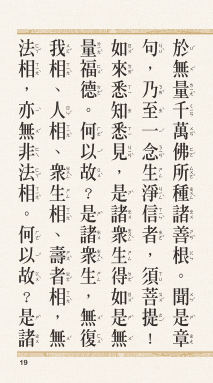 於無量千萬佛所種諸善根。聞是章
句，乃至一念生淨信者，須菩提！
如來悉知悉見，是諸眾生得如是無
量福德。何以故？是諸眾生，無復
我相、人相、眾生相、壽者相，無
法相，亦無非法相。何以故？是諸
19